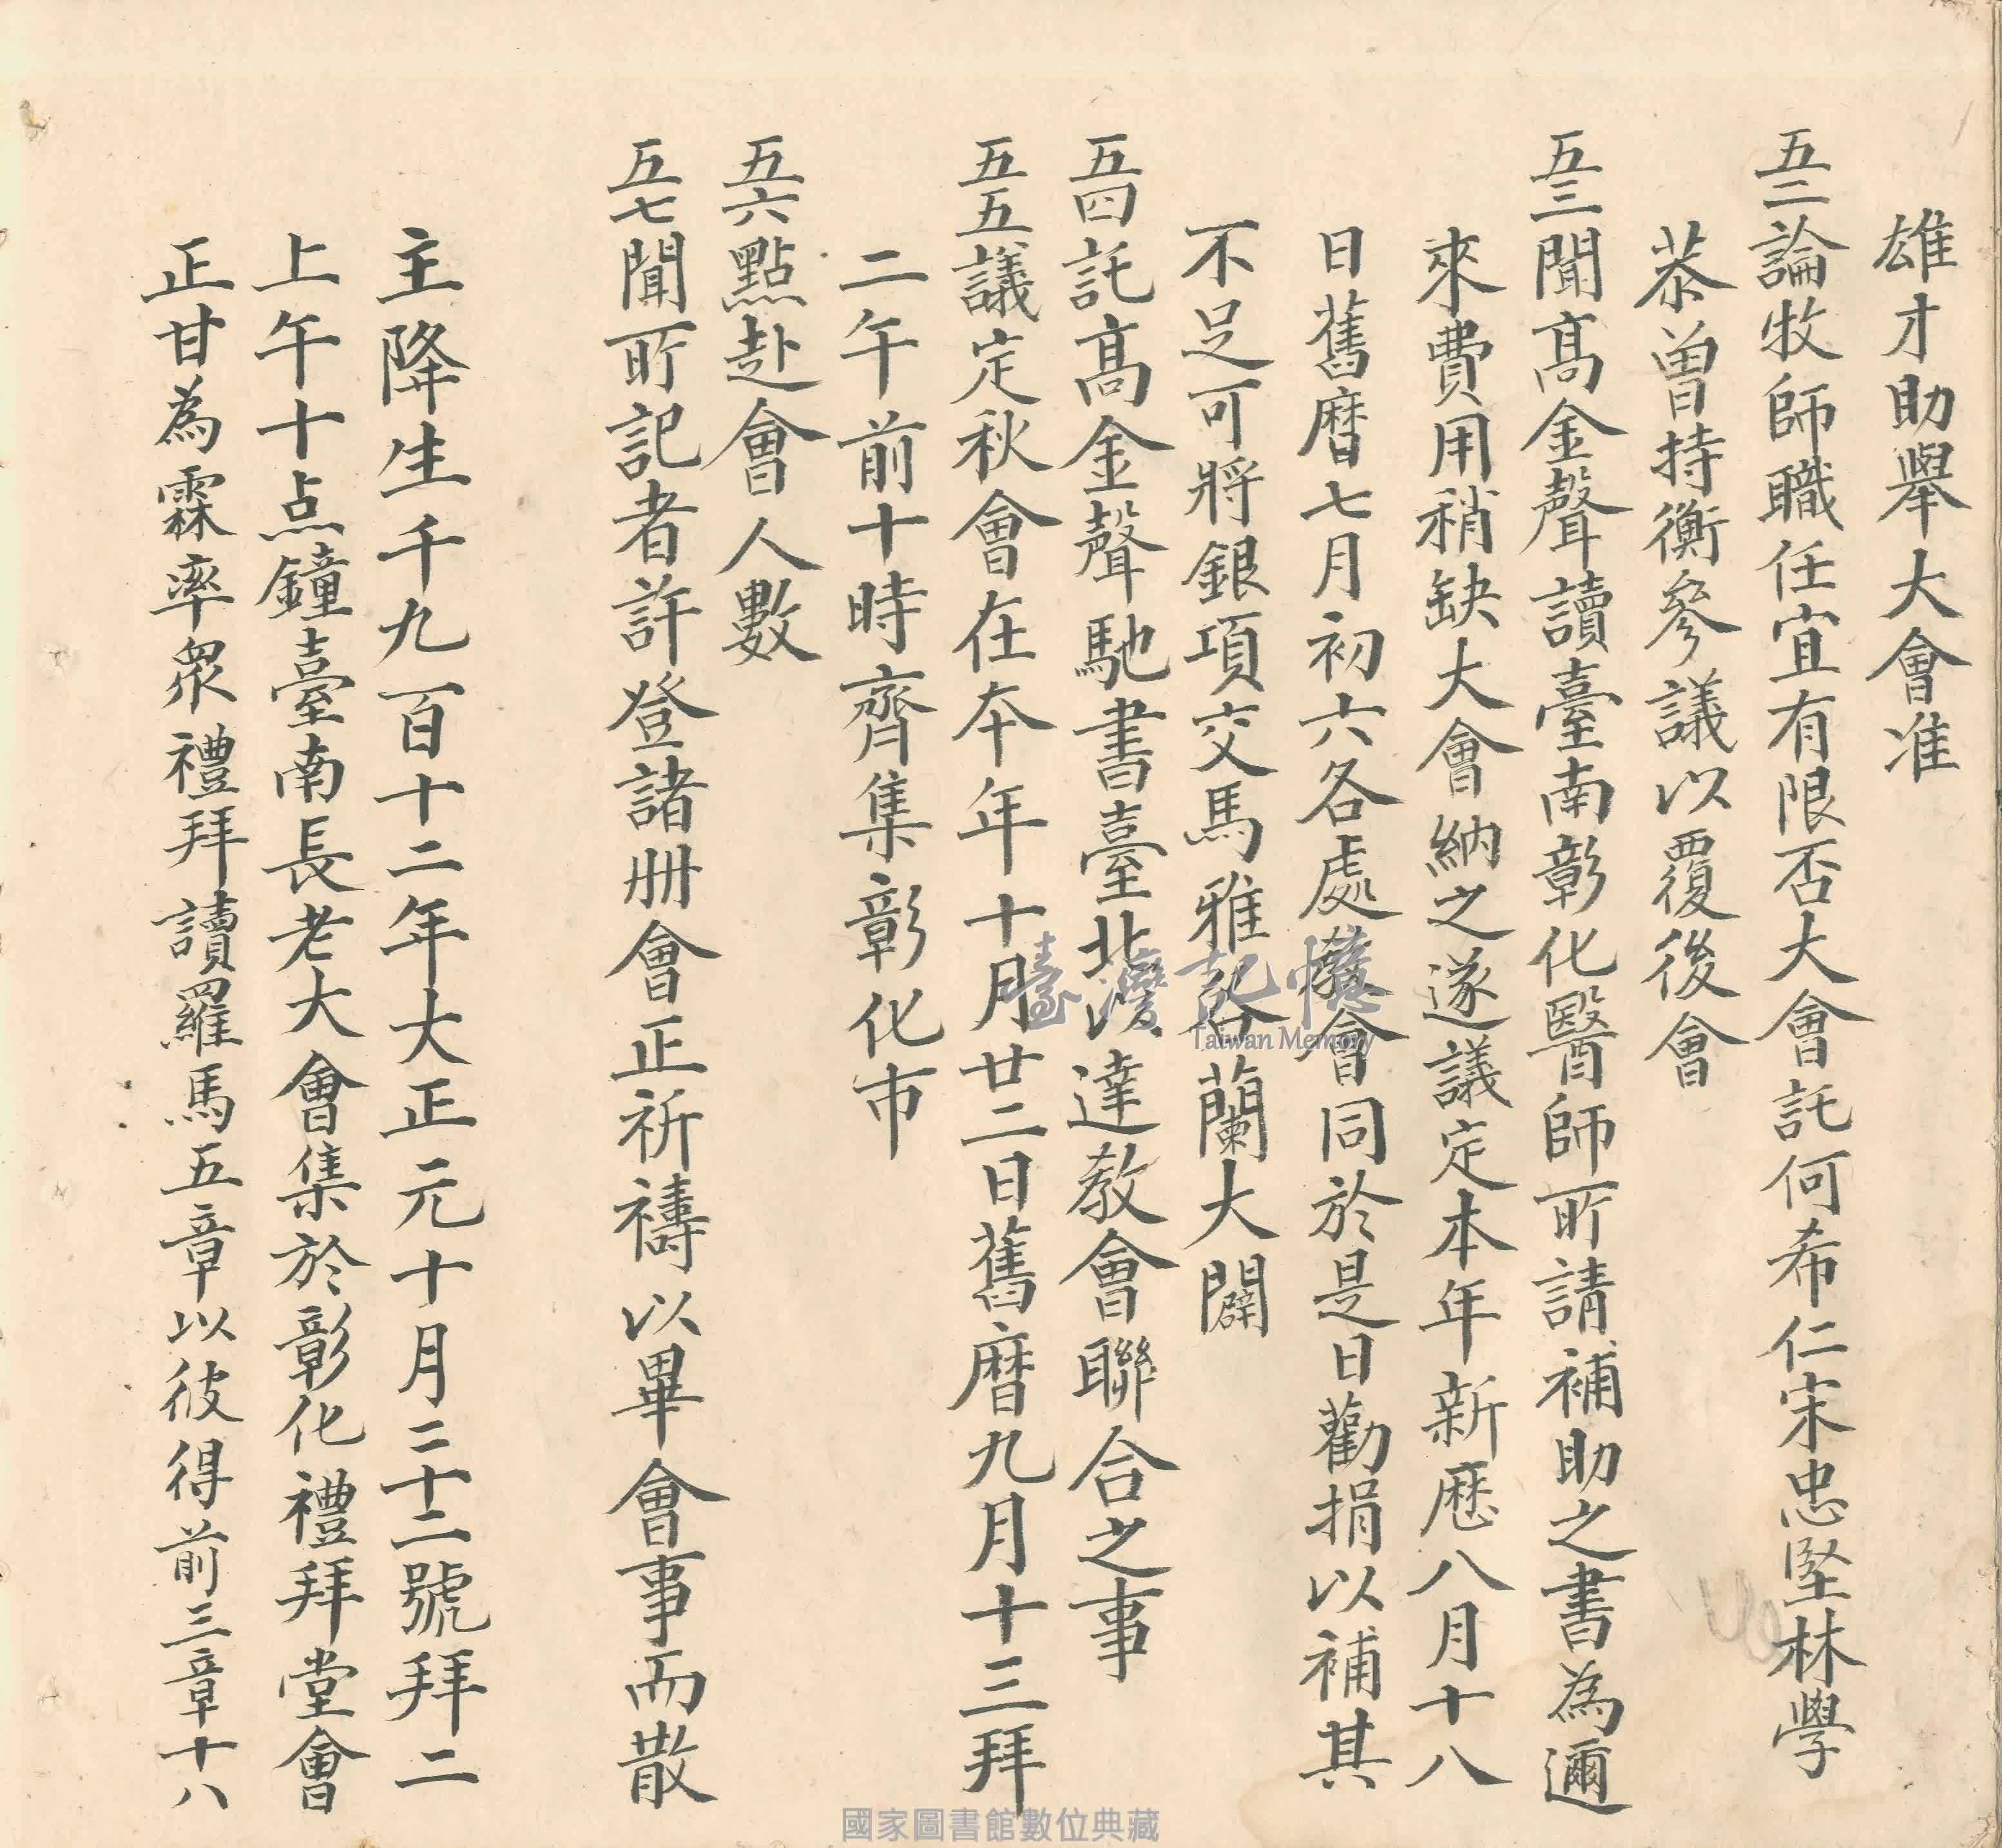 雄才助舉大會准
五二論牧師職任宜有限否大會託何希仁宋忠堅林學
恭曾持衡參議以覆後會
五三聞高金聲讀臺南彰化醫師所請補助之書為邇
來費用稍缺大會納之遂議定本年新歷八月十八
日舊曆七月初六各處教會同於是日勸捐以補其
不足可將銀項交馬雅各蘭大闢
五四託高金聲馳書臺北以達教會聯合之事
五五議定秋會在本年十月廿二日舊曆九月十三拜
二午前十時齊集彰化市
五六點赴會人數
五七聞所記者許登諸冊會正祈禱以畢會事而散
主降生千九百十二年大正元十月二十二號拜二
上午十点鐘臺南長老大會集於彰化禮拜堂會
正甘為霖率眾禮拜讀羅馬五章以彼得前三章十八
臺灣記憶
Taiwan Memory
國家圖書館數位典藏